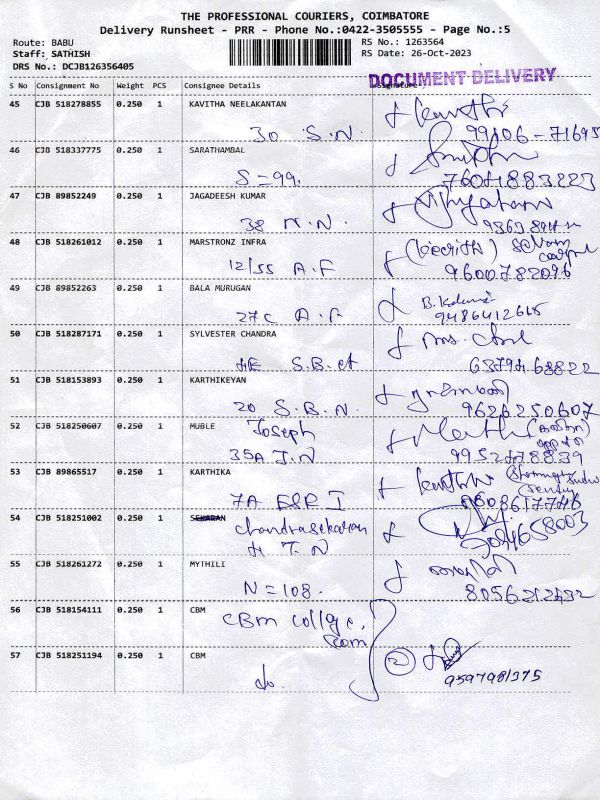 THE PROFESSIONAL COURIERS, COIMBATORE
Delivery Runsheet - PRR - Phone No.:0422-3505555 - Page No.:5
Route: BABU
RS No.: 1263564
Staff: SATHISH
RS Date: 26-Oct-2023
DRS No.: DCJB126356405
DOCUMENT DELIVERY
S No Consignment No Weight PCS Consignee Details Signature
45 CJB 518278855 0.250 1 KAVITHA NEELAKANTAN
30 S.N.
46 CJB 518337775 0.250 1 SARATHAMBAL
S=99.
47 CJB 89852249 0.250 1 JAGADEESH KUMAR
38 N.N.
48 CJB 518261012 0.250 1 MARSTRONZ INFRA
12/55 A.F
9600782096
49 CJB 89852263 0.250 1 BALA MURUGAN
27C A.F
9486412615
50 CJB 518287171 0.250 1 SYLVESTER CHANDRA
63794 68822
51 CJB 518153893 0.250 1 KARTHIKEYAN
20 S.B.N.
9626250607
52 CJB 518250607 0.250 1 MUBLE
Joseph
35A J.N
9952478839
53 CJB 89865517 0.250 1 KARTHIKA
7A
54 CJB 518251002 0.250 1 SEKARAN
Chandrasekaran
T.N
55 CJB 518261272 0.250 1 MYTHILI
N=108.
8056212432
56 CJB 518154111 0.250 1 CBM
CBM College,
57 CJB 518251194 0.250 1 CBM
do.
2
9597981375